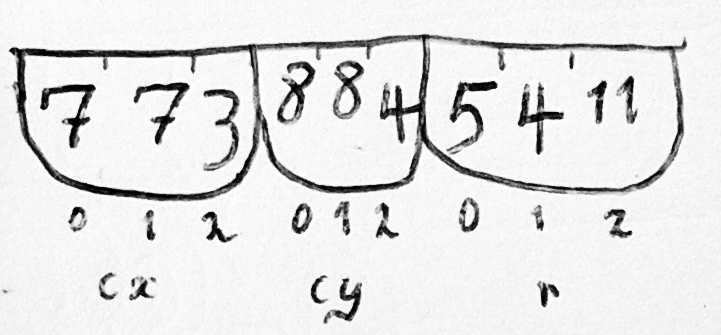 7 7 3 8 8 4 5 4 11
0 1 2 0 1 2 0 1 2
cx cy r